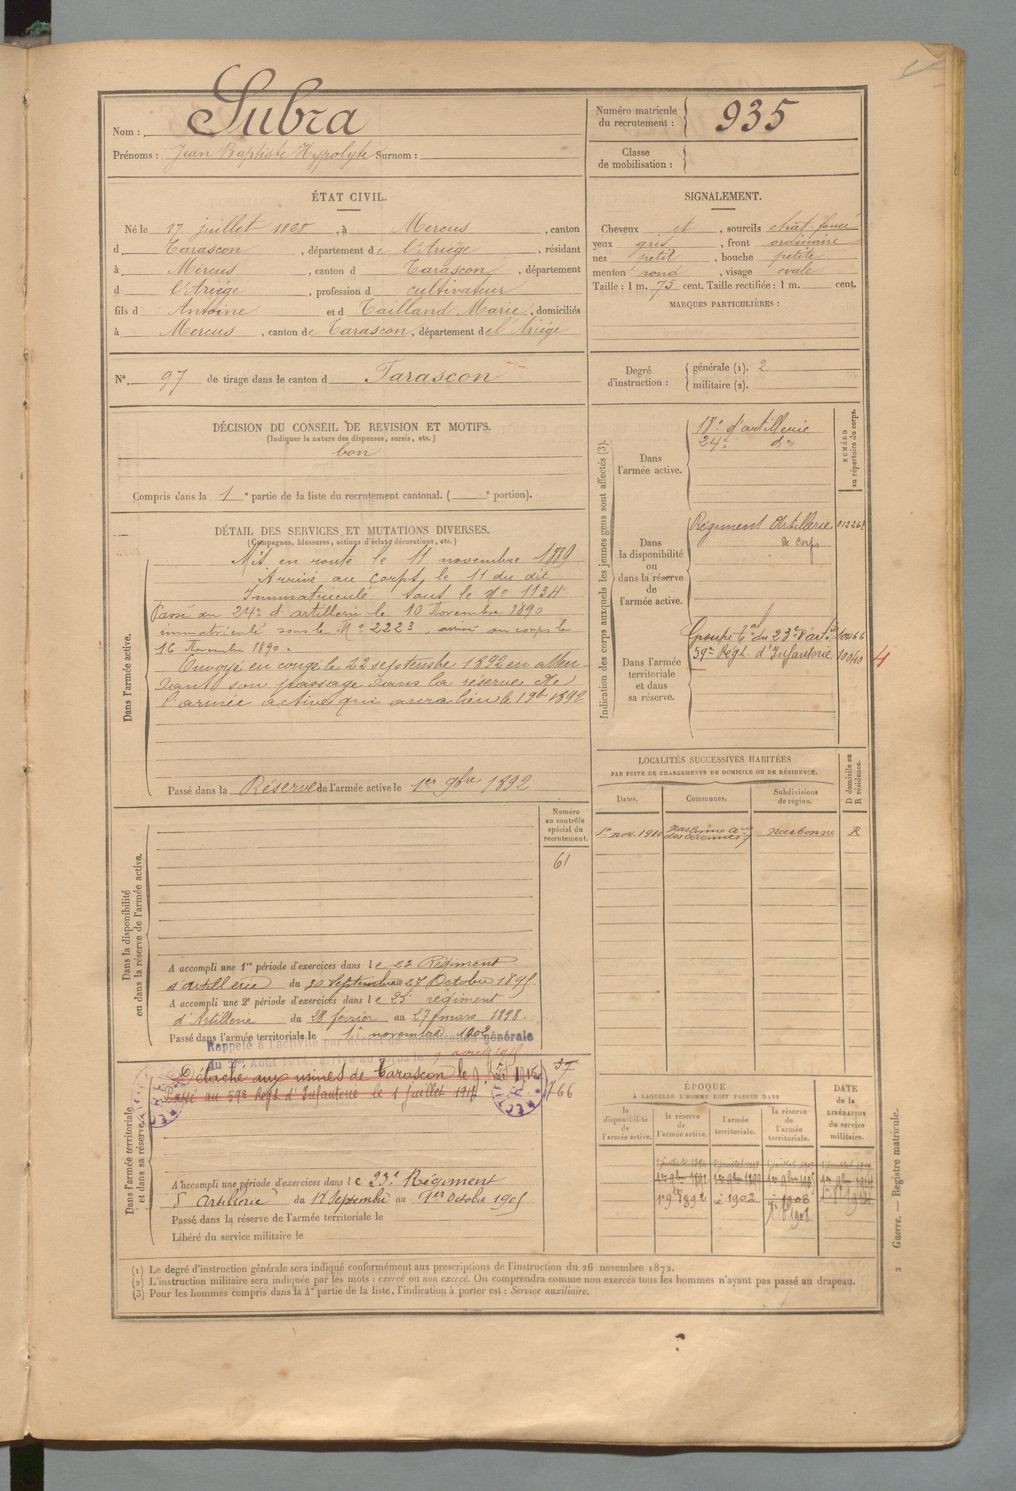 Nom : Subra
Prénoms : Jean Baptiste Hypolyte Surnom :
Numéro matricule du recrutement : 935
Classe de mobilisation :
ÉTAT CIVIL.
Né le 17 juillet 1868, à Mercus, canton
d Tarascon, département de l'Ariège, résidant
à Mercus, canton d Tarascon, département
d l'Ariège, profession d cultivateur
fils d Antoine et d Tailland Marie, domiciliés
à Mercus, canton de Tarascon, département de l'Ariège
SIGNALEMENT.
Cheveux et, sourcils chat. foncé
yeux gris, front ordinaire
nez petit, bouche petite
menton rond, visage ovale
Taille : 1 m. 75 cent. Taille rectifiée : 1 m. cent.
MARQUES PARTICULIÈRES :
N° 97 de tirage dans le canton d Tarascon
Degré d'instruction : générale (1). 2
militaire (2).
DÉCISION DU CONSEIL DE REVISION ET MOTIFS.
(Indiquer la nature des dispenses, sursis, etc.)
bon
Compris dans la 1e partie de la liste du recrutement cantonal. ( e portion).
DÉTAIL DES SERVICES ET MUTATIONS DIVERSES.
(Campagnes, blessures, actions d'éclat, décorations, etc.)
Dans l'armée active.
Mis en route le 11 novembre 1889
Arrivé au corps, le 11 du dit
Immatriculé sous le No 1134
Passé au 24e d'artillerie le 10 Novembre 1890
immatriculé sous le No 2223, arrivé au corps le
16 Novembre 1890.
Envoyé en congé le 22 septembre 1892 en atten-
dant son passage dans la réserve de
l'armée active qui aura lieu le 1 9bre 1892
Passé dans la Réserve de l'armée active le 1er 9bre 1892
Indication des corps auxquels les jeunes gens sont affectés (3).
NUMÉRO au répertoire du corps.
Dans l'armée active.
18e d'artillerie
24e do
Dans la disponibilité ou dans la réserve de l'armée active.
Régiment Artillerie
de corps
Dans l'armée territoriale et dans sa réserve.
Groupe tal du 23e d'art.
59e Régt d'Infanterie
4
LOCALITÉS SUCCESSIVES HABITÉES
PAR SUITE DE CHANGEMENTS DE DOMICILE OU DE RÉSIDENCE.
Dates. Communes. Subdivisions de région. D domicile ou R résidence.
1er nov. 1910 Narbonne Narbonne R
Dans la disponibilité ou dans la réserve de l'armée active.
Numéro au contrôle spécial du recrutement.
61
A accompli une 1re période d'exercices dans le 23 Régiment
d'artillerie du 30 Septembre 27 Octobre 1895
A accompli une 2e période d'exercices dans le 23e régiment
d'Artillerie du 28 février au 27 mars 1898.
Passé dans l'armée territoriale le 1er novembre 1902
Rappelé à l'activité par décret de mobilisation générale
Dans l'armée territoriale et dans sa réserve.
Détaché aux usines de Tarascon le
Passé au 59e Régt d'Infanterie le 1 Juillet
37
766
A accompli une période d'exercices dans le 23e Régiment
d'Artillerie du 17 Septembre au 1er Octobre 1905
Passé dans la réserve de l'armée territoriale le
Libéré du service militaire le
ÉPOQUE
À LAQUELLE L'HOMME DOIT PASSER DANS
la disponibilité de l'armée active. la réserve de l'armée active. l'armée territoriale. la réserve de l'armée territoriale.
DATE de la LIBÉRATION du service militaire.
1902 1908
(1) Le degré d'instruction générale sera indiqué conformément aux prescriptions de l'instruction du 26 novembre 1872.
(2) L'instruction militaire sera indiquée par les mots : exercé ou non exercé. On comprendra comme non exercés tous les hommes n'ayant pas passé au drapeau.
(3) Pour les hommes compris dans la 4e partie de la liste, l'indication à porter est : Service auxiliaire.
2 Guerre. — Registre matricule.